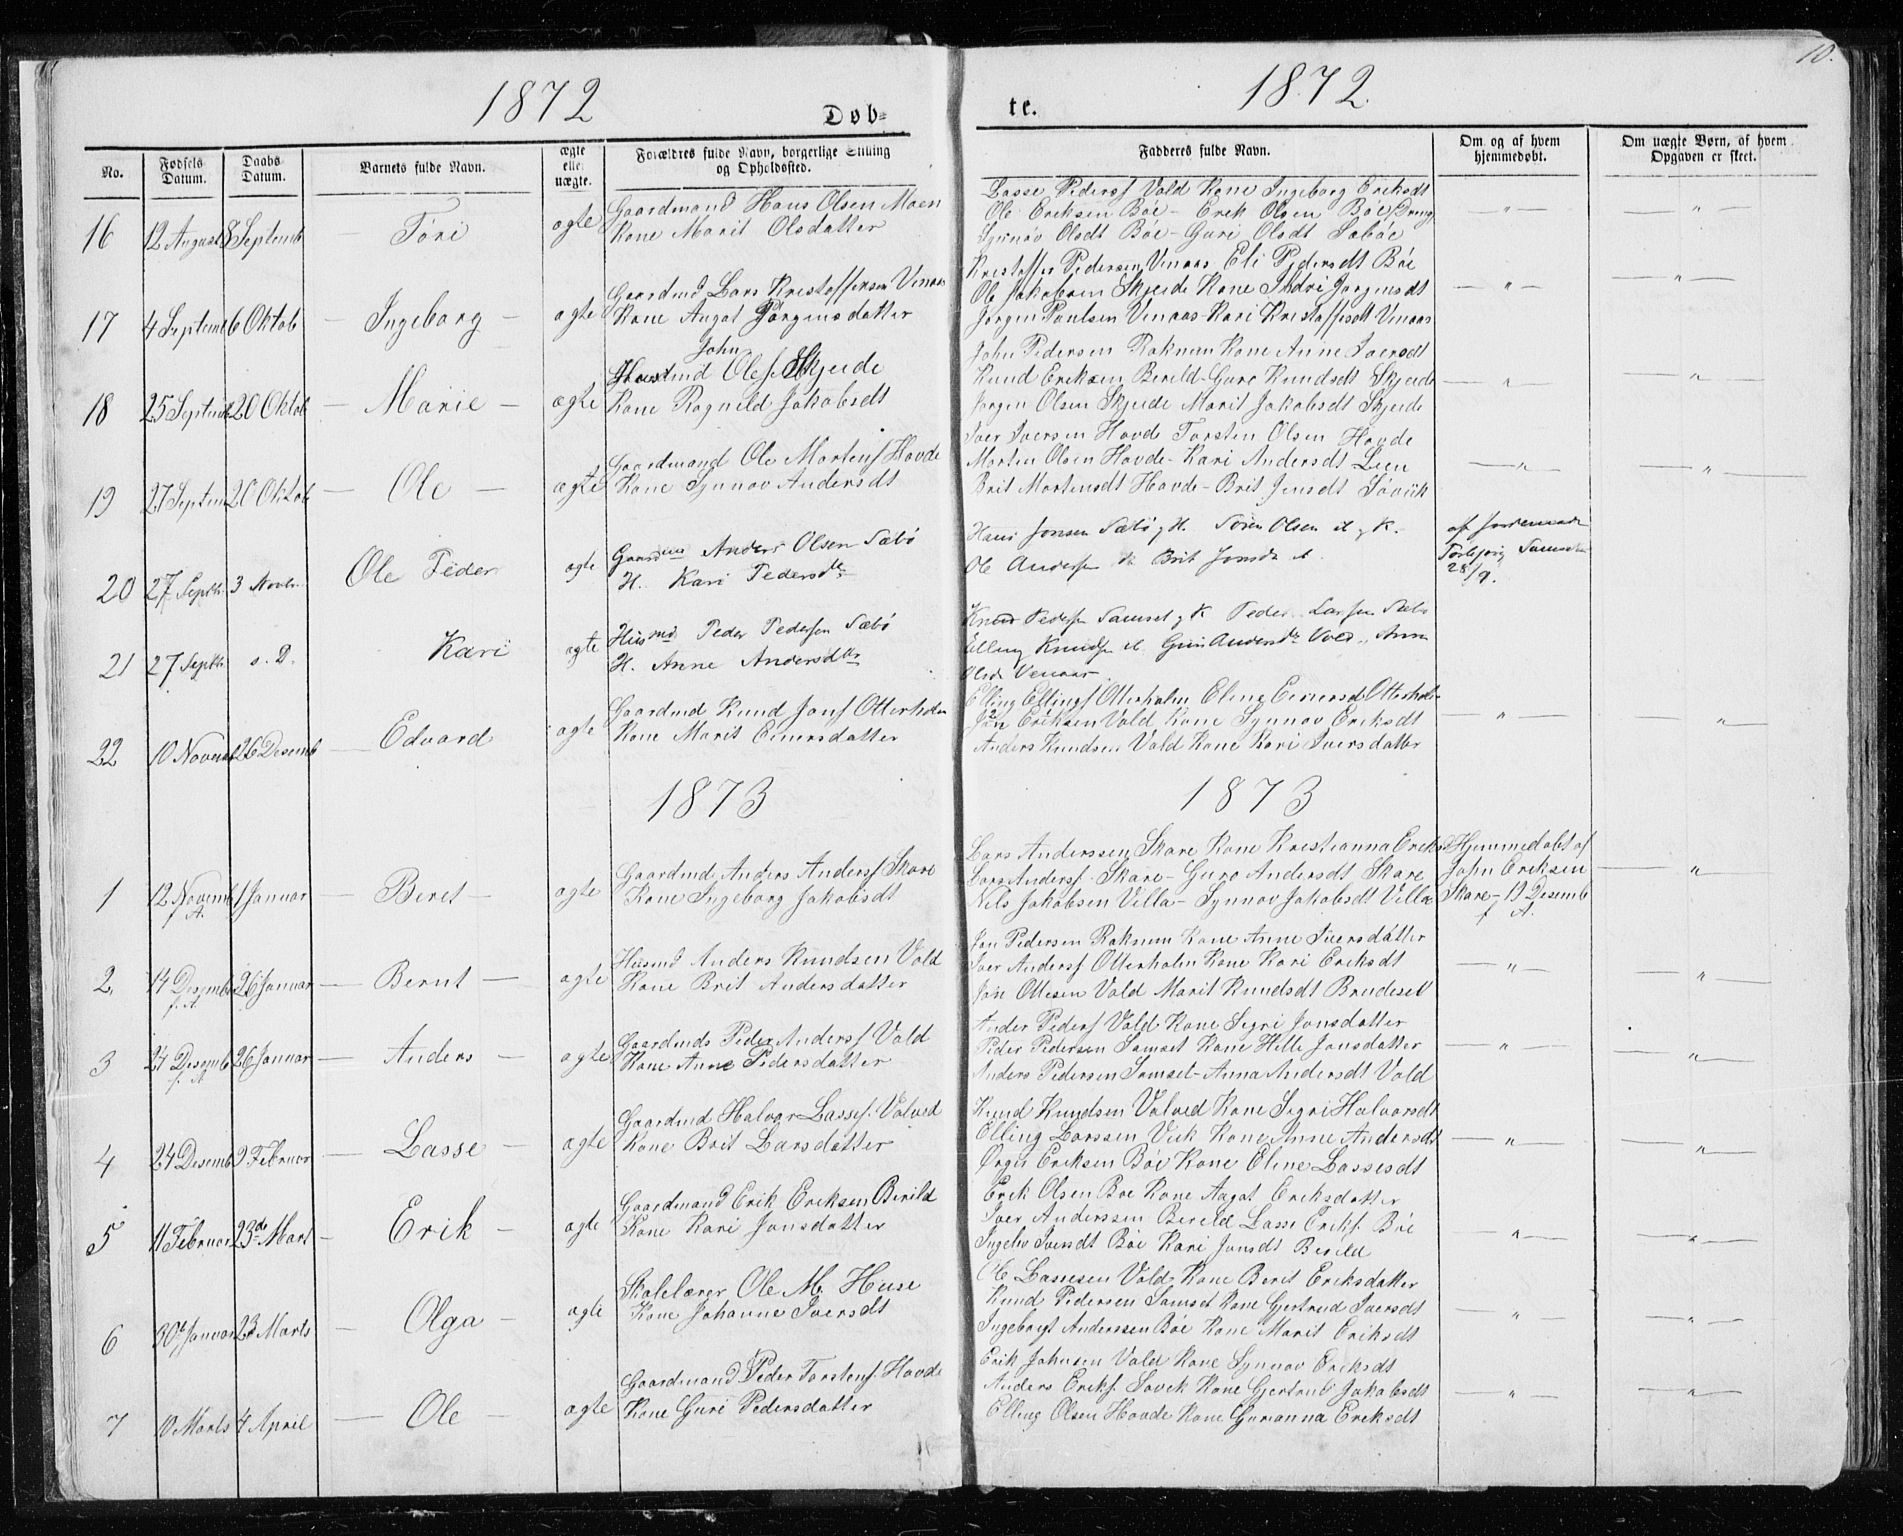 10.
1872
1872.
Døb-
te.
No.
Fødsels Datum.
Daabs Datum.
Barnets fulde Navn.
ægte eller uægte.
Forældres fulde Navn, borgerlige Stilling og Opholdssted.
Fadderes fulde Navn.
Om og af hvem hjemmedøbt.
Om uægte Børn, af hvem Opgaven er skeet.
16 12 August 8 Septemb — Töri ægte
Gaardmand Hans Olsen Moen
Kone Marit Olsdatter
Lasse Peders. Vold Kone Ingeborg Eriksdt
Ole Eriksen Böe - Erik Olsen Böe Dreng
Synnöv Olsdt Böe - Guri Olsdt Saböe
17 4 Septemb 6 Oktob — Ingeborg — ægte
Gaardmd Lars Kristoffersen Venaas
Kone Aagot Jörgensdatter
Kristoffer Pedersen Venaas Eli Pedersdt Böe
Ole Jakobsen Skjeide Kone Jörgensdt
Jörgen Paulsen Venaas Kari Kristoffersdt Venaas
18 25 Septemb 20 Oktob — Marie — ægte
John
Husmd Ols. Skjeide
Kone Ragnild Jakobsdt
John Pedersen Raknem Kone Anne Iversdt
Knud Eriksen Berild - Guro Knudsdt Skjeide
Jörgen Olsen Skjeide Marit Jakobsdt Skjeide
19 27 Septem 20 Oktob — Ole — ægte
Gaardmand Ole Mortens. Hovde
Kone Synnöv Andersdt
Iver Iversen Hovde Torsten Olsen Hovde
Morten Olsen Hovde - Kari Andersdt Leen
Brit Mortensdt Hovde - Brit Jensdt Sövik
20 27 Septb. 3 Novbr. Ole Peder ægte
Gaardmd Anders Olsen Sæbö
H. Kari Pedersdtr
Hans Jonsen Sæbö, H. Sören Olsen K.
Ole Andersen Brit Jonsdtr
af Jordemoder
Torbjörg Samset
28/9.
21 27 Septb. s. D. Kari ægte
Husmd Peder Pedersen Sæbö
H. Anne Andersdtr
Knud Pedersen Samset, K. Peder Larsen Sæbö
Elling Knudsen Guri Andersdtr Vold, Anne
Olsdt Venaas
22 10 Novemb 26 Desemb — Edvard ægte
Gaardmd Knud Jons. Otterholm
Kone Marit Einersdatter
Elling Ellings. Otterholm Eline Einersdt Otterholm
Jon Eriksen Vold Kone Synnöv Eriksdt
Anders Knudsen Vold Kone Kari Iversdatter
1873
1873
1 12 Novemb f. A. 1 Januar — Beret — ægte
Gaardmd Anders Anders. Skare
Kone Ingeborg Jakobsdt
Lars Anderssen Skare Kone Kristianna Eriks
Lars Anders. Skare - Guro Andersdt Skare
Nils Jakobsen Villa - Synnöv Jakobsdt Villa
Hjemmedøbt af
John Eriksen
Skare - 19 Desemb
f. A.
2. 14 Desemb f. A 26 Januar — Bernt — ægte
Husmd Anders Knudsen Vold
Kone Brit Andersdatter
Jon Pedersen Raknem Kone Anne Iversdatter
Iver Anders. Otterholm Kone Kari Eriksdt
Jon Ottesen Vold Marit Knudsdt Brudeset
3 24 Desemb f. A 26 Januar — Anders — ægte
Gaardmds Peder Anders. Vold
Kone Anne Pedersdatter
Ander Peders. Vold Kone Sigri Jonsdatter
Peder Pedersen Samset Kone Hille Jonsdatter
Anders Pedersen Samset - Anna Andersdt Vold
4 24 Desemb 9 Februar — Lasse — ægte
Gaardmd Halvar Lasses. Valved
Kone Brit Larsdatter
Knud Knudsen Valved Kone Sigri Halvorsdt
Elling Larssen Vik Kone Anne Andersdt
Eriksen Böe Kone Eline Lassesdt
5 11 Februar 23de Mart — Erik — ægte
Gaardmand Erik Eriksen Berild
Kone Kari Jonsdatter
Erik Olsen Böe Kone Aagot Eriksdatter
Iver Anderssen Berild Lasse Eriks. Böe
Ingeliv Iversdt Böe Kari Jonsdt Berild
6 30te Januar 23 Marts — Olga — ægte
Skolelærer Ole M. Huse
Kone Johanne Iversdt
Ole Lassesen Vold Kone Berit Eriksdatter
Knud Pedersen Samset Kone Gjertrud Iversdt
Ingebrigt Anderssen Böe Kone Marit Eriksdt
7 10 Marts 4 April — Ole — ægte
Gaardmand Peder Torstens. Hovde
Kone Guri Pedersdatter
Erik Johnsen Vold Kone Synnöv Eriksdt
Anders Eriks. Sövik Kone Gjertrud Jakobsdt
Elling Olsen Hovde Kone Gurianna Eriksdt